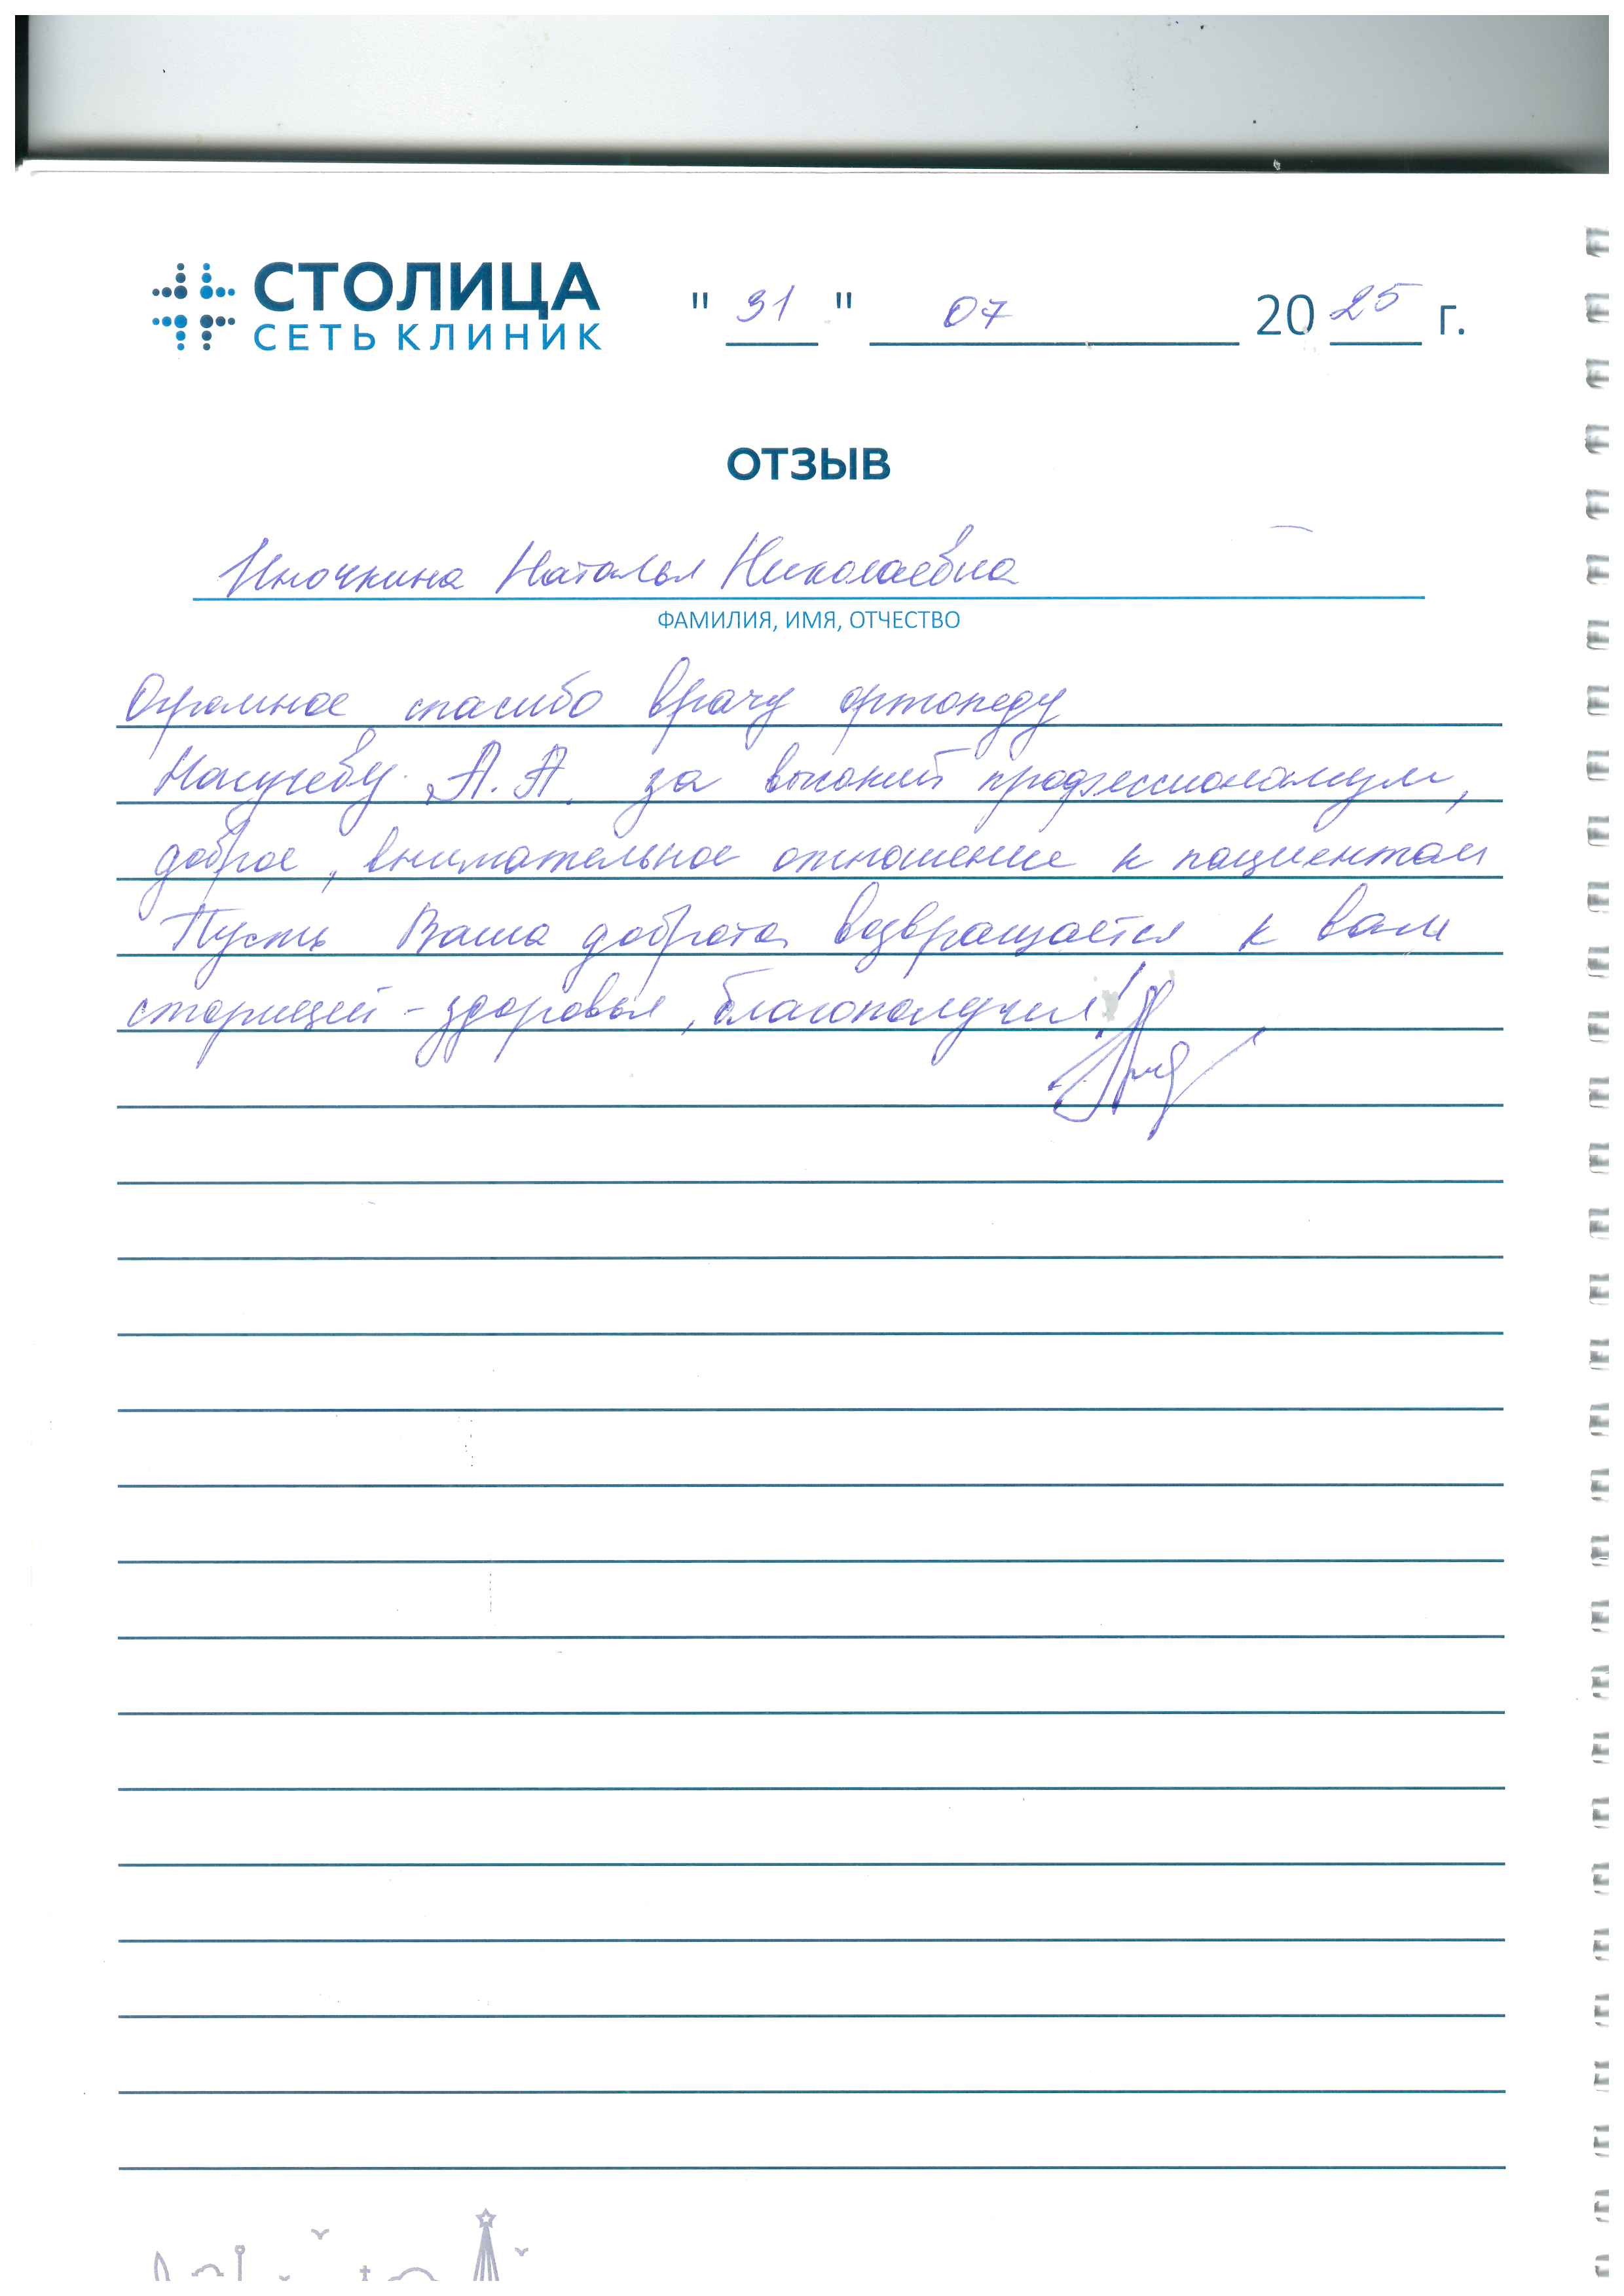 СТОЛИЦА
СЕТЬ КЛИНИК
" 31 " 07 20 25 г.
ОТЗЫВ
Иночкина Наталья Николаевна
ФАМИЛИЯ, ИМЯ, ОТЧЕСТВО
Огромное спасибо врачу ортопеду
А.А. за высокий профессионализм,
доброе, внимательное отношение к пациентам
Пусть Ваша доброта возвращается к вам
сторицей - здоровья, благополучия!